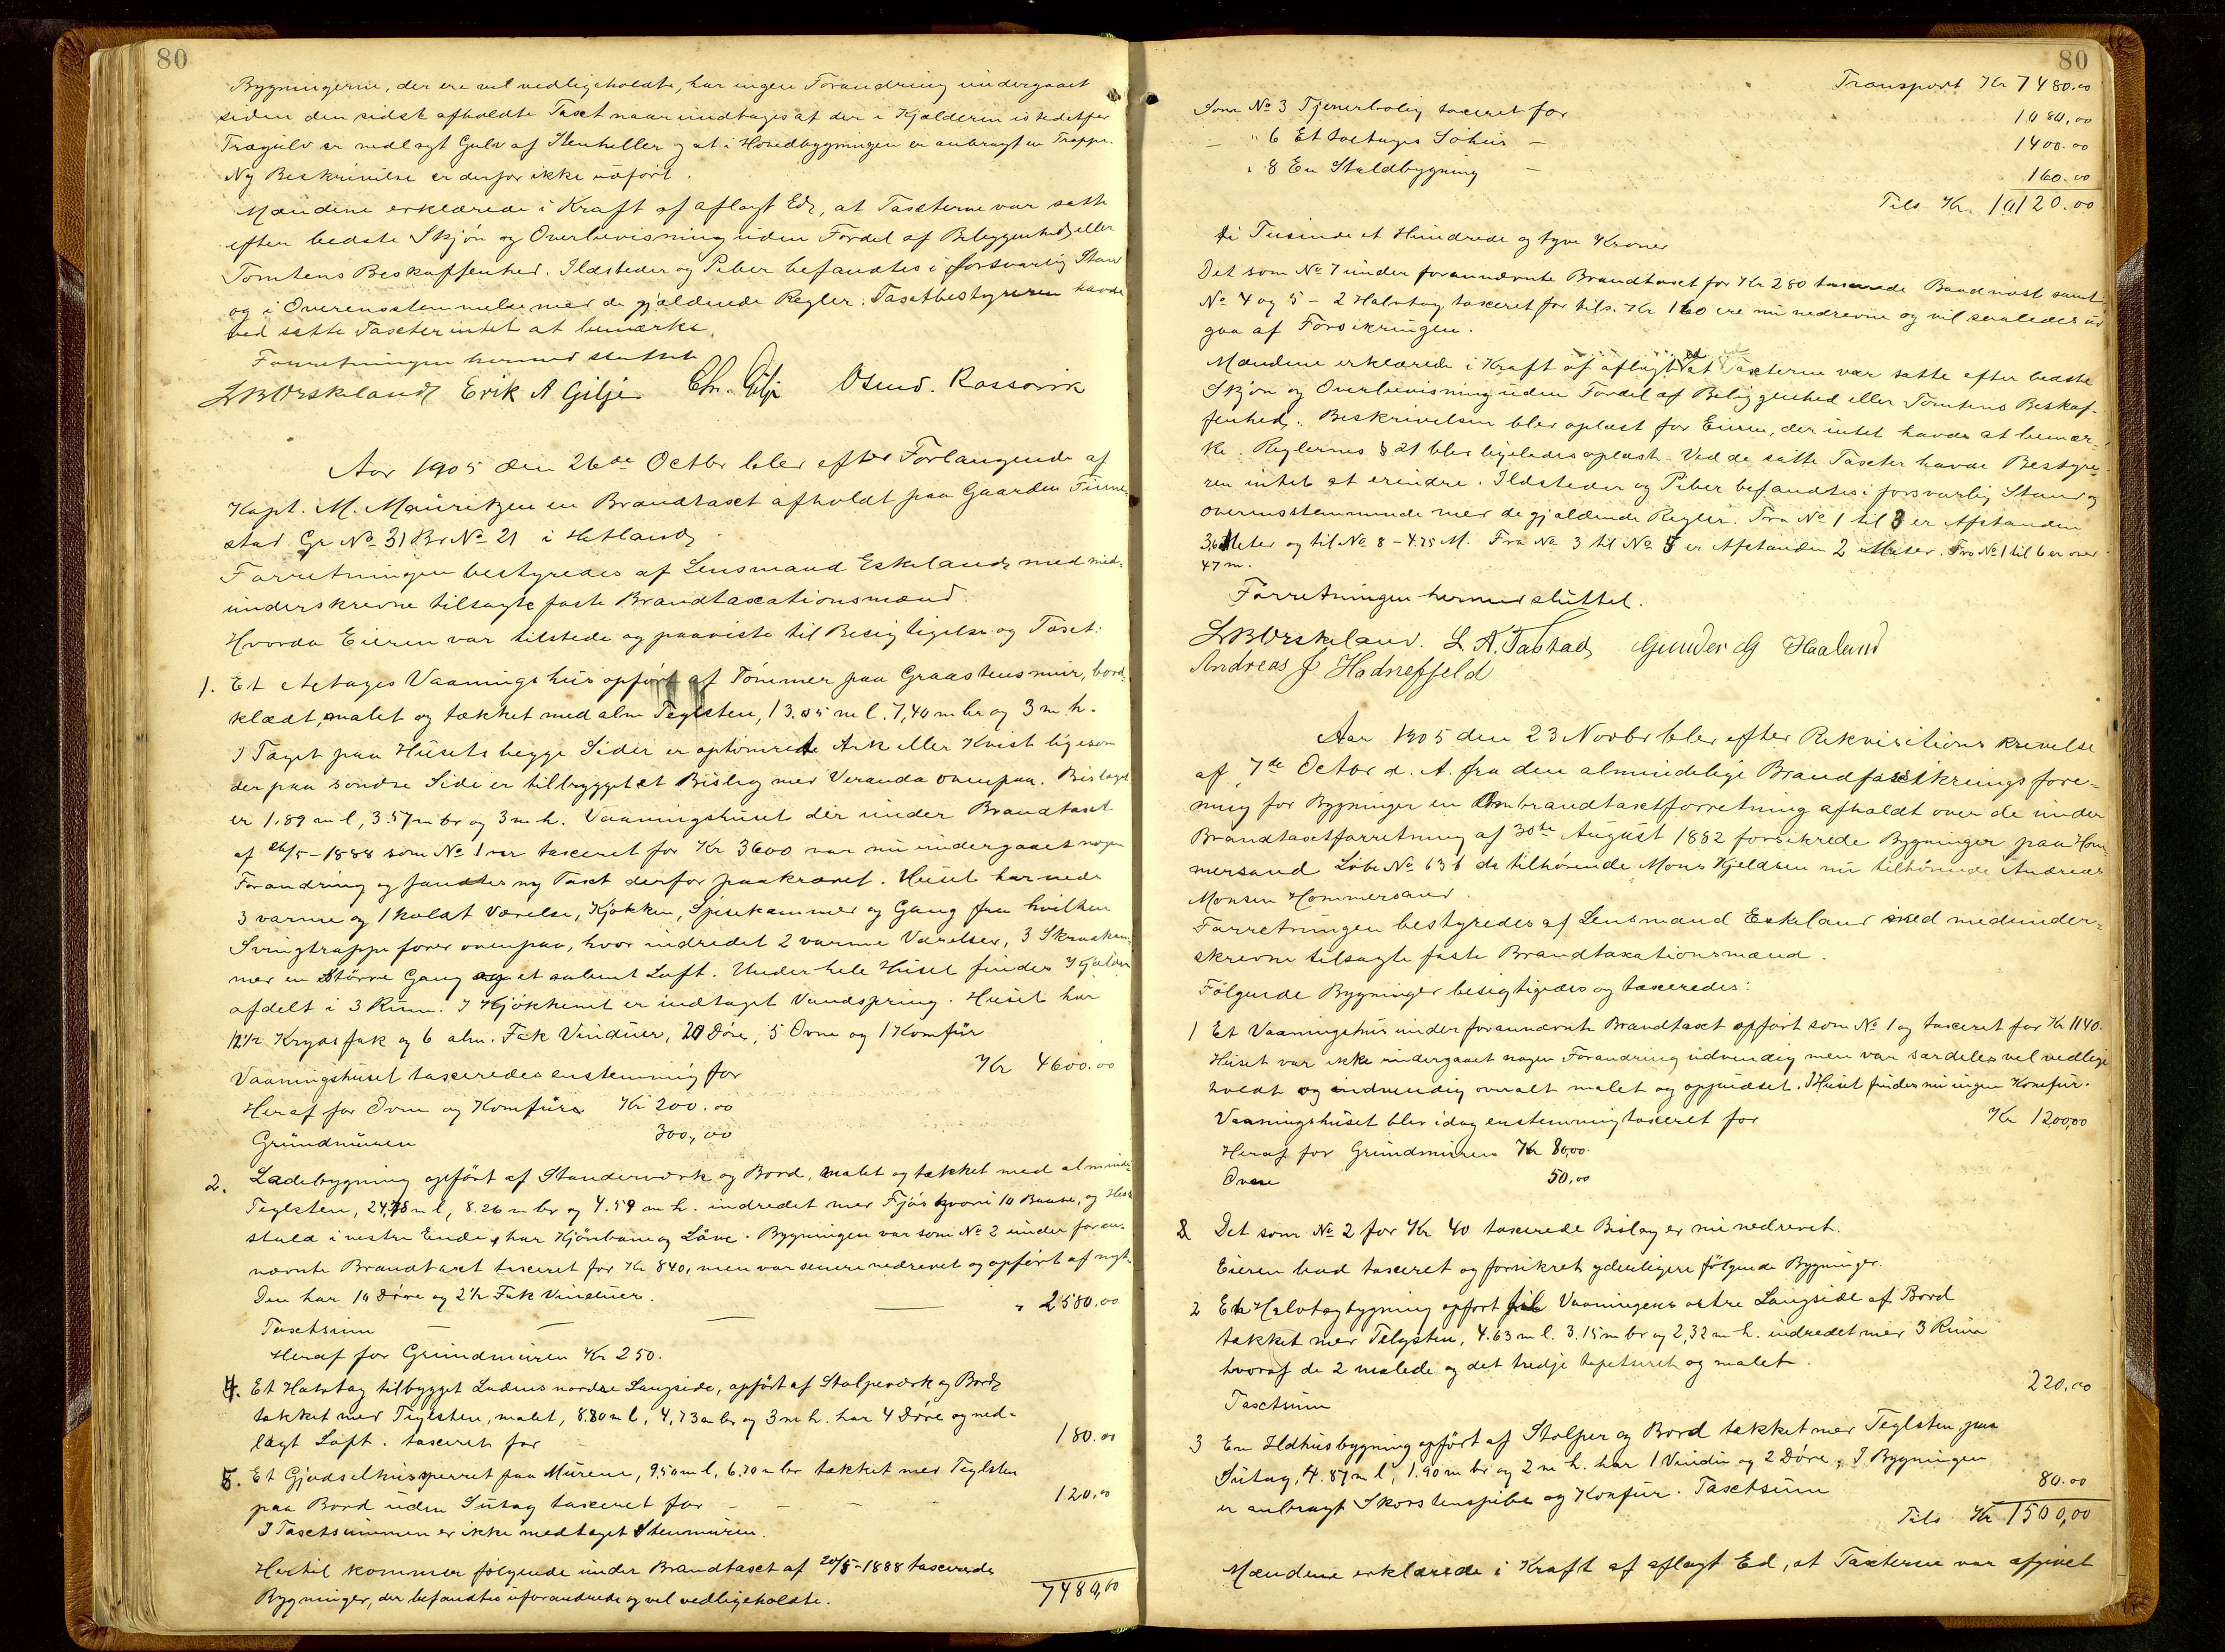 80
Bygningerne, der ere vel vedligeholdte, har ingen Forandring undergaaet
siden den sidst afholdte Taxt naar undtages at der i Kjælderen istedetfor
Trægulv er nedlagt Gulv af Stenheller og at i Hovedbygningen er anbragt en Trappe.
Ny Beskrivelse er derfor ikke udført.
Mændene erklærede i Kraft af aflagt Ed, at Taxterne var satte
efter bedste Skjøn og Overbevisning uden Fordel af Beliggenhed eller
Tomtens Beskaffenhed. Ildsteder og Piber befandtes i forsvarlig Stand
og i Overensstemmelse med de gjældende Regler. Taxtbestyreren havde
ved satte Taxter intet at bemærke.
Forretningen hermed sluttet
LBØrskeland Erik A Gilje Chr. Gilje Osmd. Rossavik
Aar 1905 den 26de Octbr blev efter Forlangende af
Kapt. M. Mauritzen en Brandtaxt afholdt paa Gaarden Finne-
stad Gr No 31 Br No 21 i Hetland.
Forretningen bestyredes af Lensmand Eskeland med med-
underskrevne tilsagte faste Brandtaxationsmænd.
Hvorda Eieren var tilstede og paaviste til Besigtigelse og Taxt:
1. Et Aetages Vaaningshus opført af Tømmer paa Graastensmur, bord-
klædt, malet og tækket med alm Teglsten, 13.05 m l. 7,40 m br og 3 m h.
I Taget paa Husets begge Sider er optømrede Ark eller Kvist ligesom
der paa søndre Side er tilbygget et Bislag med Veranda ovenpaa. Bislaget
er 1.89 m l, 3.57 m br og 3 m h. Vaaningshuset der under Brandtaxt
af 26/5-1888 som No 1 var taxeret for Kr 3600 var nu undergaaet nogen
Forandring og fandtes ny Taxt derfor paakrævet. Huset har nede
3 varme og 1 koldt Værelse, Kjøkken, Spisekammer og Gang fra hvilken
Svingtrappe fører ovenpaa, hvor indredet 2 varme Værelser, 3 Skraakam-
mer en større Gang og et aabent Loft. Under hele Huset findes Kjælder
afdelt i 3 Rum. I Kjøkkenet er indtaget Vandspring. Huset har
12 1/2 Krydsfak og 6 alm. Fak Vinduer, 20 Døre, 5 Ovne og 1 Komfur
Vaaningshuset taxeredes enstemmig for Kr 4600.00
Heraf for Ovne og Komfurer Kr 200.00
Grundmuren 300,00
2. Ladebygning opført af Standerværk og Bord, malet og tækket med alminde
Teglsten, 24,75 m l, 8.26 m br og 4.59 m h. indredet med Fjøs hvori 10 Baase, og Heste
stald i vestre Ende, har Kjørebane og Laave. Bygningen var som No 2 under foran-
nævnte Brandtaxt taxeret for Kr 840, men var senere nedrevet og opført af nyt.
Den har 10 Døre og 2 1/2 Fak Vinduer.
Taxtsum — — — — " 2580.00
Heraf for Grundmuren Kr 250.
4. Et Halvtag tilbygget Ladens nordre Langside, opført af Stolpeværk og Bord
tækket med Teglsten, malet, 8.80 m l, 4,73 m br og 3 m h. har 4 Døre og ned-
lagt Loft. taxeret for - 180.00
5. Et Gjødselhus sperret paa Murene, 9.50 m l, 6.70 m br tækket med Teglsten
paa Bord uden Sutag taxeret for - - - - 120.00
I Taxtsummen er ikke medtaget Stenmuren.
Hertil kommer følgende under Brandtaxt af 20/5-1888 taxerede
Bygninger, der befandtes uforandrede og vel vedligeholdte. 7480,00
80
Transport Kr 7480.00
Som No 3 Tjenerbolig taxeret for 1080,00
- " 6 Et toetages Søhus - 1400.00
" 8 En Staldbygning - 160.00
Tils Kr. 10120.00
Ti Tusinde et Hundrede og tyve Kroner
Det som No 7 under forannævnte Brandtaxt for Kr 280 taxerede Baadnøst samt
No 4 og 5 - 2 Halvtag taxeret for tils. Kr 160 ere nu nedrevne og vil saaledes ud
gaa af Forsikringen.
Mændene erklærede i Kraft af aflagt Ed at Taxterne var satte efter bedste
Skjøn og Overbevisning uden Fordel af Beliggenhed eller Tomtens Beskaf-
fenhed. Beskrivelsen blev oplæst for Eieren, der intet havde at bemær-
ke. Reglernes § 21 blev ligeledes oplæst. Ved de satte Taxter havde Bestyre-
ren intet at erindre. Ildsteder og Piber befandtes i forsvarlig Stand og
overensstemmende med de gjældende Regler. Fra No 1 til 3 er Afstanden
36 Meter og til No 8 - 4.75 M. Fra No 3 til No 5 er Afstanden 2 Meter. Fra No 1 til 6 er over
47 m.
Forretningen hermed sluttet.
LBØrskeland. L. A. Tastad, Gunder G Haaland
Andreas J Hadnefjeld
Aar 1905 den 23 Novbr blev efter Rekvisitionsskrivelse
af 7de Octbr d. A. fra den almindelige Brandforsikringsfore-
ning for Bygninger en Ombrandtaxtforretning afholdt over de under
Brandtaxtforretning af 30te August 1882 forsikrede Bygninger paa Hom-
mersand Løbe No 636 da tilhørende Mons Kjeldsen nu tilhørende Andreas
Monsen Hommersand.
Forretningen bestyredes af Lensmand Eskeland med medunder-
skrevne tilsagte faste Brandtaxationsmænd.
Følgende Bygninger besigtigedes og taxeredes:
1 Et Vaaningshus under forannævnte Brandtaxt opført som No 1 og taxeret for Kr 1140.
Huset var ikke undergaaet nogen Forandring udvendig men var særdeles vel vedlige
holdt og indvendig overalt malet og oppudset. I Huset findes nu ingen Komfur.
Vaaningshuset blev idag enstemmig taxeret for Kr 1200,00
Heraf for Grundmuren Kr 80.00
Ovne 50,00
2 Det som No 2 for Kr 40 taxerede Bislag er nu nedrevet.
Eieren bad taxeret og forsikret yderligere følgende Bygninger.
2 En Halvtagbygning opført til Vaaningens østre Langside af Bord
tækket med Telgsten, 4.63 m l. 3.15 m br og 2,32 m h. indredet med 3 Rum
hvoraf de 2 malede og det tredje tapetseret og malet.
Taxtsum 220.00
3 En Ildhusbygning opført af Stolper og Bord tækket med Teglsten paa
Sutag, 4.87 m l, 1.90 m br og 2 m h. har 1 Vindu og 2 Døre. I Bygningen
er anbragt Skorstenspibe og Komfur. Taxtsum 80.00
Tils Kr 1500,00
Mændene erklærede i Kraft af aflagt Ed, at Taxterne var afgivet